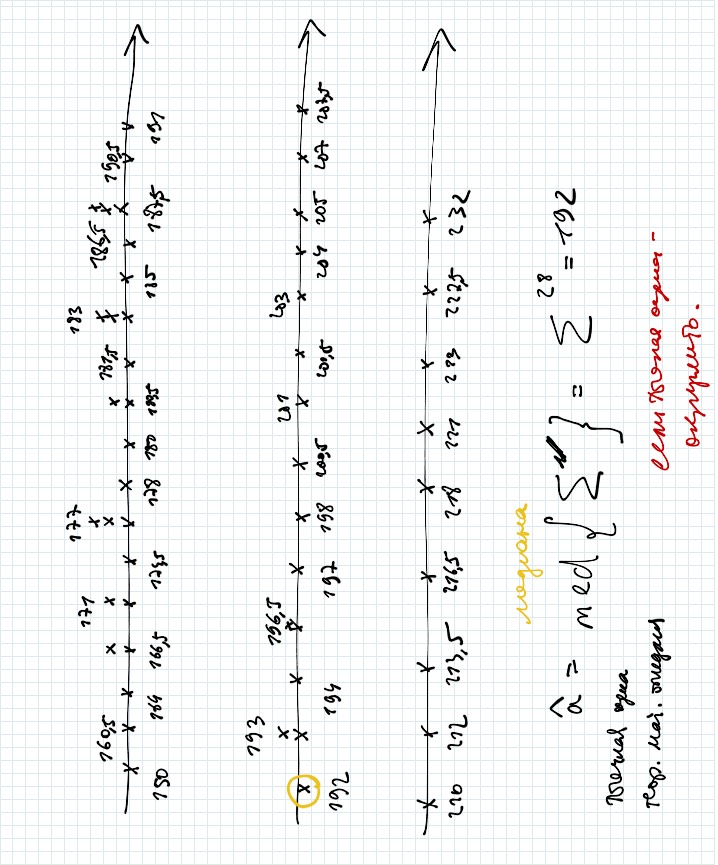 150 160,5 164 166,5 171 173,5 177 178 180 181,5 183 185 186,5 187,5 190,5 191
192 193 194 196,5 197 198 200,5 201 203 204 205 207 207,5
210 212 213,5 216,5 218 221 223 227,5 232
медиана
â = med { Σ } = Σ²⁸ = 192
точная оценка
теор. мат. ожидания
если точная оценка -
округлить.